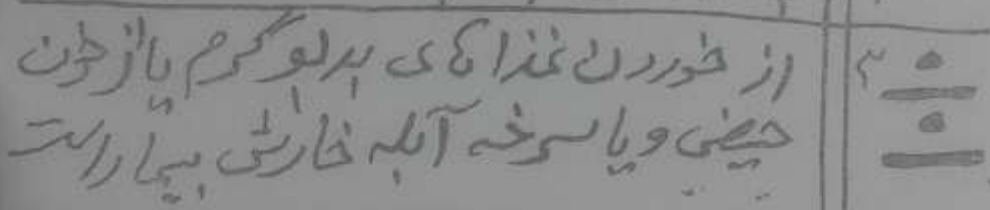 از خوردن غذاهای بدبو گرم یا از خون ۳
حیضی و یا سرخه آبله خارش بیمار است